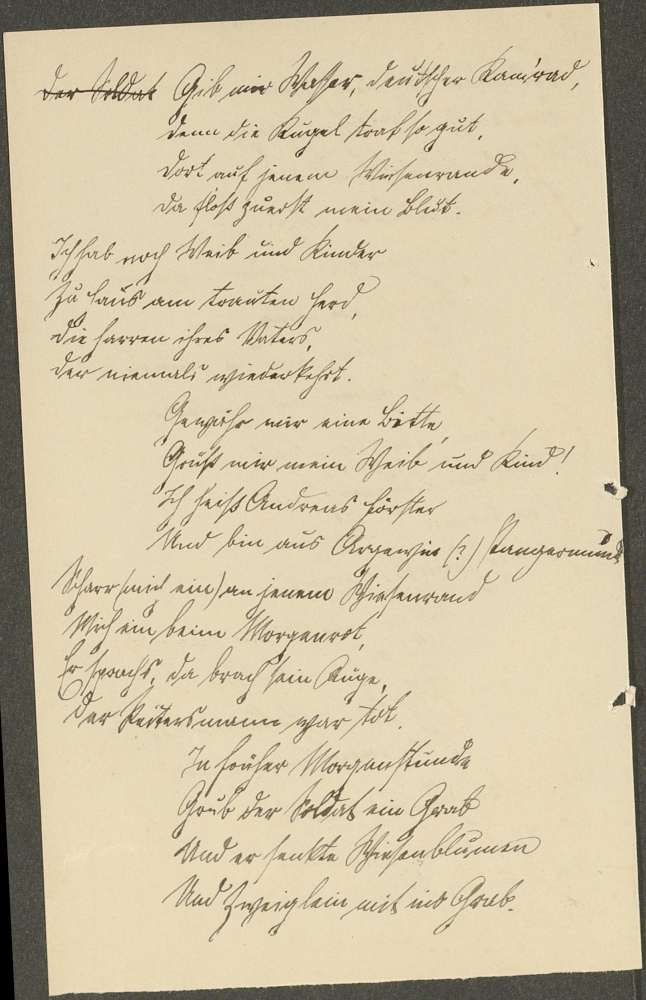 Der Soldat Gib mir Wasser, deutscher Kam'rad,
denn die Kugel traf so gut,
Dort auf jenem Wiesenrande,
da floß zuerst mein Blut.
Ich hab noch Weib und Kinder
Zu Haus am trauten Herd,
die harren ihres Vaters,
der niemals wiederkehrt.
Gewähr mir eine Bitte,
Grüß mir mein Weib und Kind!
Ich heiß Andreas Förster
Und bin aus (?) Tangermünd
Scharr (mich ein) an jenem Wiesenrand
Mich ein beim Morgenrot,
Er sprachs, da brach sein Auge,
Der Reitersmann war tot.
In früher Morgenstunde
Grub der Soldat ein Grab
Und er senkte Wiesenblumen
Und Zweiglein mit ins Grab.